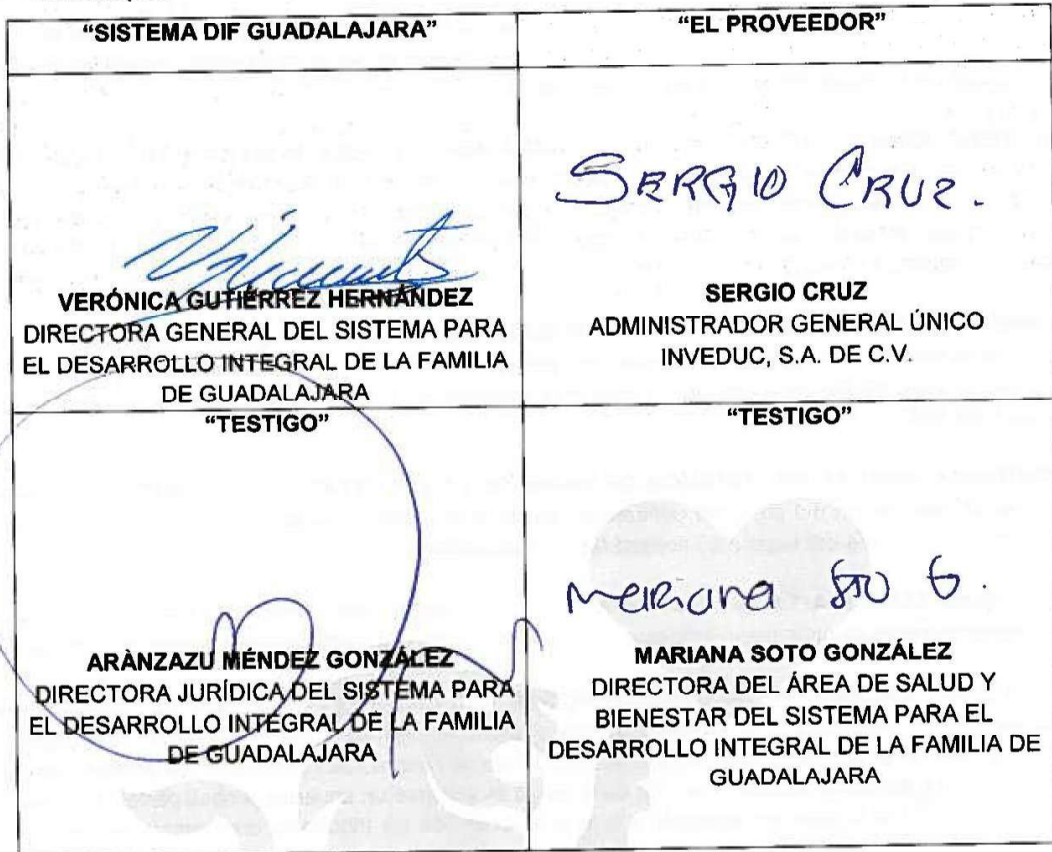 “SISTEMA DIF GUADALAJARA”
“EL PROVEEDOR”
SERGIO CRUZ.
VERÓNICA GUTIÉRREZ HERNÁNDEZ
DIRECTORA GENERAL DEL SISTEMA PARA
EL DESARROLLO INTEGRAL DE LA FAMILIA
DE GUADALAJARA
SERGIO CRUZ
ADMINISTRADOR GENERAL ÚNICO
INVEDUC, S.A. DE C.V.
“TESTIGO”
ARÀNZAZU MÉNDEZ GONZÁLEZ
DIRECTORA JURÍDICA DEL SISTEMA PARA
EL DESARROLLO INTEGRAL DE LA FAMILIA
DE GUADALAJARA
“TESTIGO”
Mariana Sto G.
MARIANA SOTO GONZÁLEZ
DIRECTORA DEL ÁREA DE SALUD Y
BIENESTAR DEL SISTEMA PARA EL
DESARROLLO INTEGRAL DE LA FAMILIA DE
GUADALAJARA